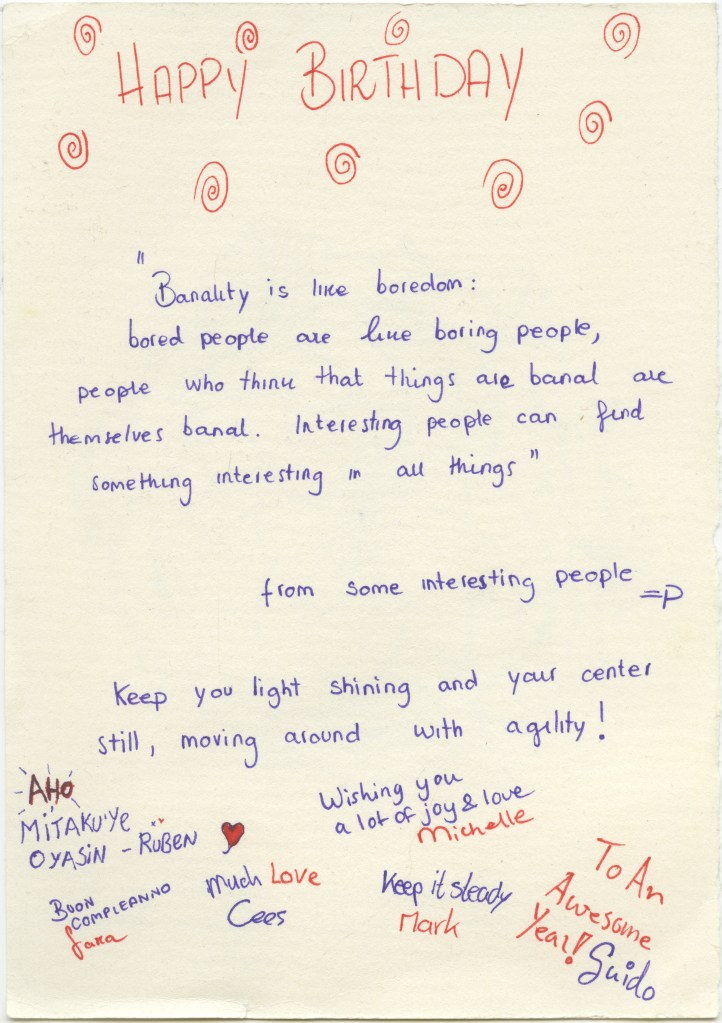 HAPPY BIRTHDAY
"Banality is like boredom:
bored people are like boring people,
people who think that things are banal are
themselves banal. Interesting people can find
something interesting in all things"
from some interesting people =P
Keep you light shining and your center
still, moving around with agility!
AHO
MITAKU'YE
OYASIN - RUBEN
Wishing you
a lot of joy & love
Michelle
BUON
COMPLEANNO
Sara
Much Love
Cees
Keep it steady
Mark
To An
Awesome
Year!
Guido